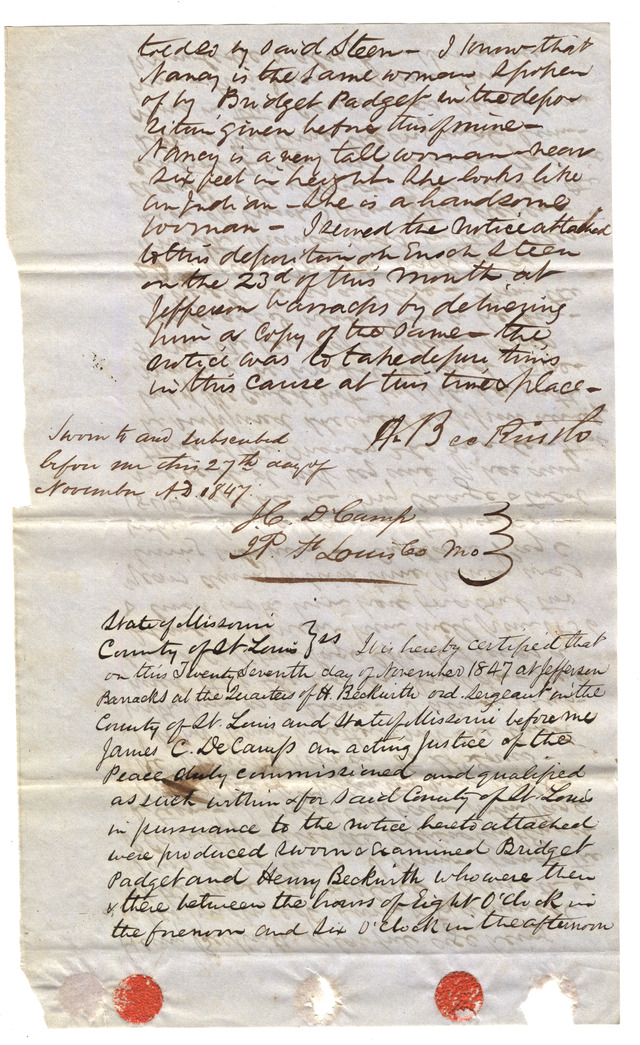 told so by said Steen - I know that
Nancy is the same woman spoken
of by Bridget Padget in the depo-
sition given before this of mine -
Nancy is a very tall woman near
six feet in height She looks like
an Indian - She is a handsome
woman - I served the notice attached
to this deposition on Enoch Steen
on the 23d of this month at
Jefferson Barracks by delivering
him a copy of the same - the
notice was to take depositions
in this cause at this time & place -
H Beckwith
Sworn to and subscribed
before me this 27th day of
November AD 1847
J.C. DCamp
JP St Louis Co Mo
State of Missouri
County of St Louis } ss It is hereby certified that
on this Twenty Seventh day of November 1847 at Jefferson
Barracks at the Quarters of H. Beckwith ord. Sergeant in the
County of St. Louis and State of Missouri before me
James C. DeCamp an acting Justice of the
Peace duly commissioned and qualified
as such within & for said County of St Louis
in pursuance to the notice hereto attached
were produced sworn & examined Bridget
Padget and Henry Beckwith who were then
& there between the hours of Eight O'clock in
the forenoon and Six O'clock in the afternoon